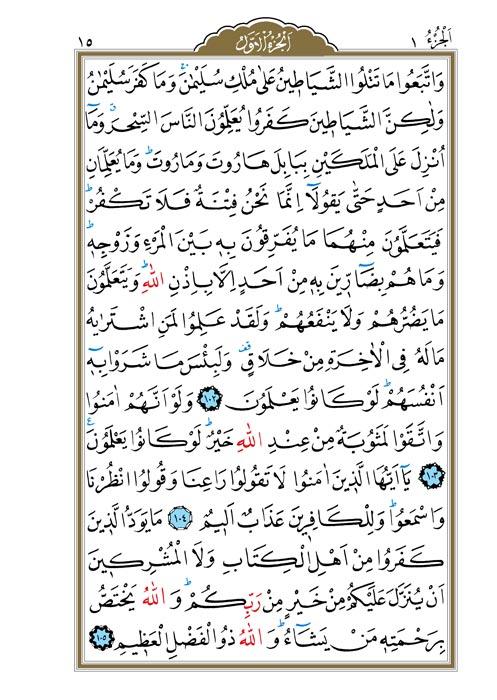 اَلْجُزْءُ ١
اَلْجُزْءُ الْاَوَّلُ
١٥
وَاتَّبَعُوا مَا تَتْلُوا الشَّيَاطِينُ عَلٰى مُلْكِ سُلَيْمٰنَۚ وَمَا كَفَرَ سُلَيْمٰنُ
وَلٰكِنَّ الشَّيَاطِينَ كَفَرُوا يُعَلِّمُونَ النَّاسَ السِّحْرَۗ وَمَٓا
اُنْزِلَ عَلَى الْمَلَكَيْنِ بِبَابِلَ هَارُوتَ وَمَارُوتَۜ وَمَا يُعَلِّمَانِ
مِنْ اَحَدٍ حَتّٰى يَقُولَٓا اِنَّمَا نَحْنُ فِتْنَةٌ فَلَا تَكْفُرْۜ
فَيَتَعَلَّمُونَ مِنْهُمَا مَا يُفَرِّقُونَ بِهِ بَيْنَ الْمَرْءِ وَزَوْجِهِۜ
وَمَا هُمْ بِضَٓارِّينَ بِهِ مِنْ اَحَدٍ اِلَّا بِاِذْنِ اللّٰهِۜ وَيَتَعَلَّمُونَ
مَا يَضُرُّهُمْ وَلَا يَنْفَعُهُمْۜ وَلَقَدْ عَلِمُوا لَمَنِ اشْتَرٰيهُ
مَا لَهُ فِي الْاٰخِرَةِ مِنْ خَلَاقٍۜ وَلَبِئْسَ مَا شَرَوْا بِهِٓ
اَنْفُسَهُمْۜ لَوْ كَانُوا يَعْلَمُونَ ﴿١٠٢﴾ وَلَوْ اَنَّهُمْ اٰمَنُوا
وَاتَّقَوْا لَمَثُوبَةٌ مِنْ عِنْدِ اللّٰهِ خَيْرٌۜ لَوْ كَانُوا يَعْلَمُونَ۟
﴿١٠٣﴾ يَٓا اَيُّهَا الَّذِينَ اٰمَنُوا لَا تَقُولُوا رَاعِنَا وَقُولُوا انْظُرْنَا
وَاسْمَعُواۜ وَلِلْكَافِرِينَ عَذَابٌ اَلِيمٌ ﴿١٠٤﴾ مَا يَوَدُّ الَّذِينَ
كَفَرُوا مِنْ اَهْلِ الْكِتَابِ وَلَا الْمُشْرِكِينَ
اَنْ يُنَزَّلَ عَلَيْكُمْ مِنْ خَيْرٍ مِنْ رَبِّكُمْۜ وَاللّٰهُ يَخْتَصُّ
بِرَحْمَتِهِ مَنْ يَشَٓاءُۜ وَاللّٰهُ ذُو الْفَضْلِ الْعَظِيمِ ﴿١٠٥﴾